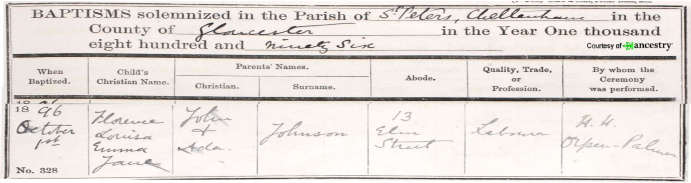 BAPTISMS solemnized in the Parish of St Peters, Cheltenham in the
County of Gloucester in the Year One thousand
eight hundred and ninety Six
Courtesy of ancestry
When Baptized.
Child's Christian Name.
Parents' Names.
Christian.
Surname.
Abode.
Quality, Trade, or Profession.
By whom the Ceremony was performed.
1896
October
1st
No. 328
Florence
Louisa
Emma
Jane
John
+
Ada
Johnson
13
Elm
Street
Labourer
H. H.
Orpen-Palmer